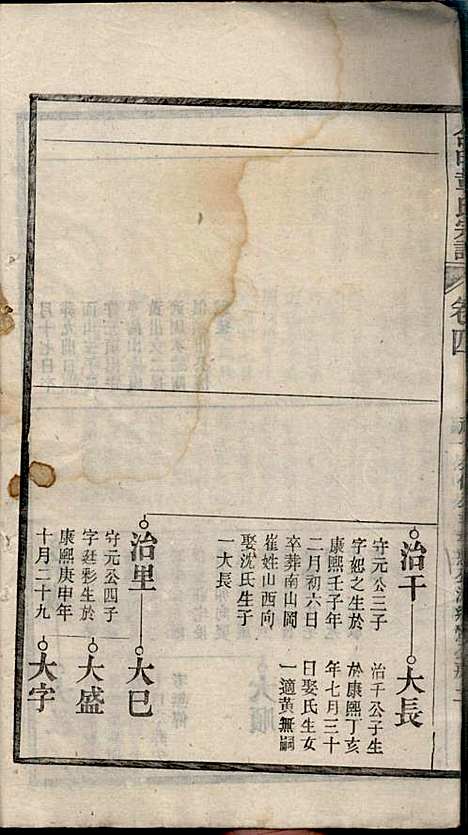 氏宗譜
卷四
治干
守元公三子
字恕之生於
康熙壬子年
二月初六日
卒葬南山岡
崔姓山西向
娶沈氏生子
一大長
大長
治干公子生
於康熙丁亥
年七月三十
日娶氏生女
一適黃無嗣
治里
守元公四子
字廷彩生於
康熙庚申年
十月二十九
大已
大盛
大字